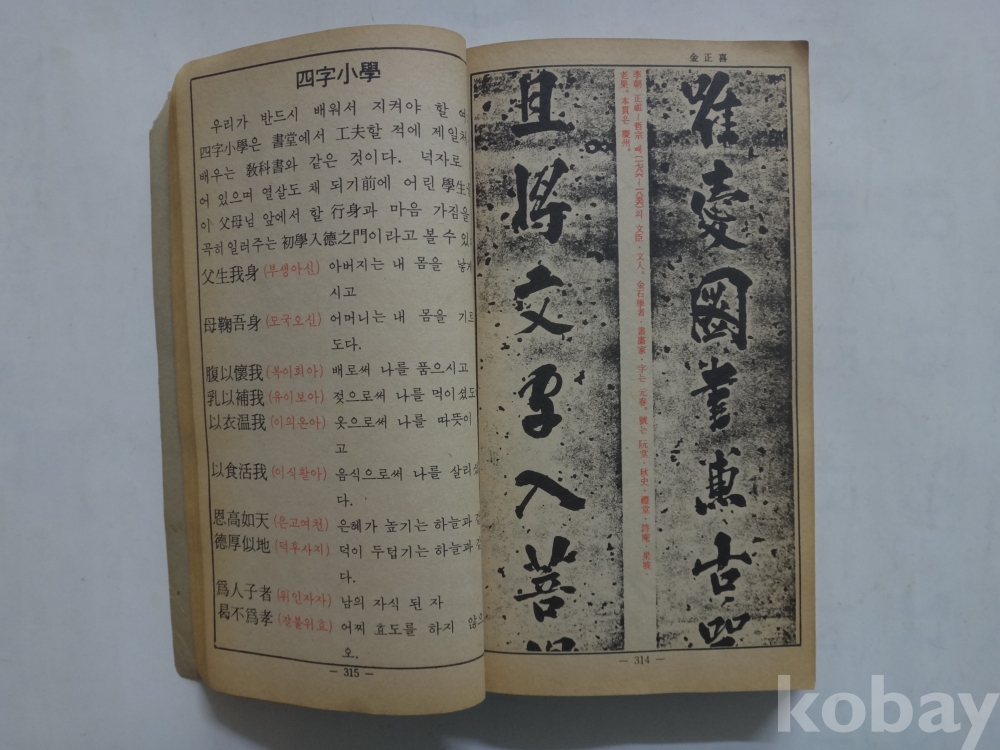 四字小學
우리가 반드시 배워서 지켜야 할
四字小學은 書堂에서 工夫할 적에 제일
배우는 敎科書와 같은 것이다. 넉자로
어 있으며 열살도 채 되기前에 어린 學生
이 父母님 앞에서 할 行身과 마음 가짐을
꼭히일러주는 初學入德之門이라고 볼 수
父生我身 (부생아신) 아버지는 내 몸을
시고
母鞠吾身 (모국오신) 어머니는 내 몸을 기르
도다.
腹以懷我 (복이회아) 배로써 나를 품으시고
乳以補我 (유이보아) 젖으로써 나를 먹이셨도
以衣温我 (이의온아) 옷으로써 나를 따뜻이
고
以食活我 (이식활아) 음식으로써 나를
다.
恩高如天 (은고여천) 은혜가 높기는 하늘과
德厚似地 (덕후사지) 덕이 두텁기는 하늘과
다.
爲人子者 (위인자자) 남의 자식 된 자
曷不爲孝 (갈불위효) 어찌 효도를 하지
오.
— 315 —
金正喜
唯愛圖書兼古器
李朝 正祖-哲宗 때 의 文臣·文人。金石學者·書畵家·字는 元春。號는 阮堂·秋史·禮堂·詩庵·果坡·
老果。本貫은 慶州。
且將文字入菩
— 314 —
kobay